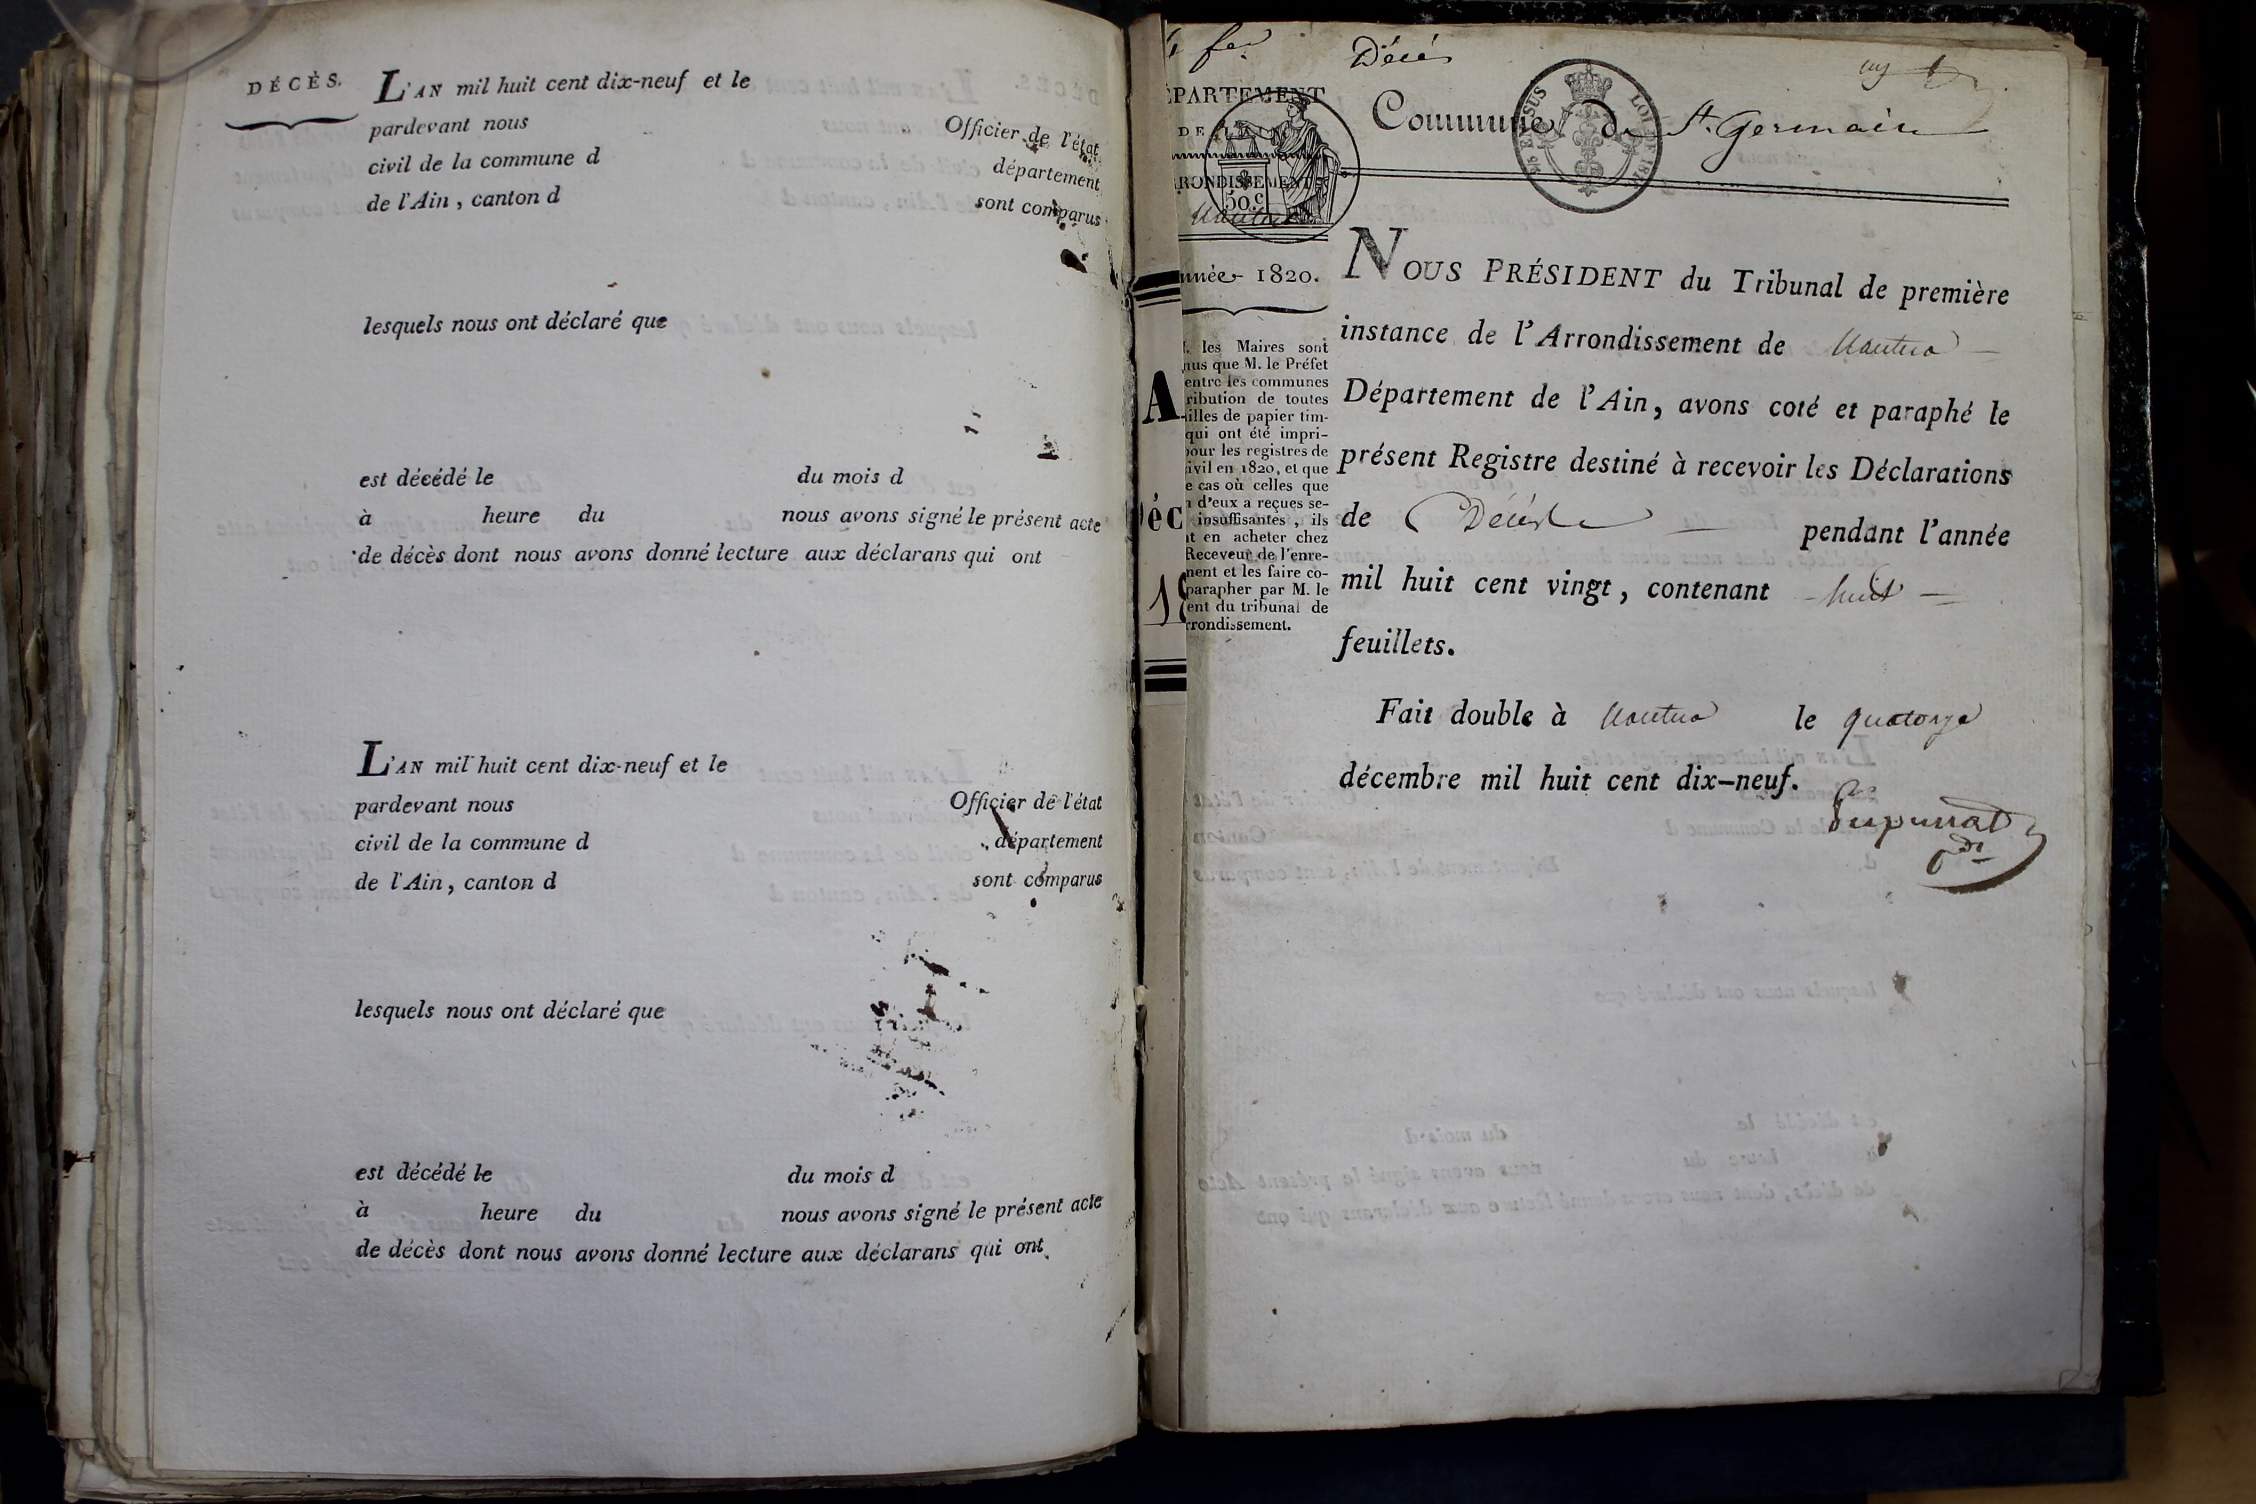 DÉCÈS.
L'AN mil huit cent dix-neuf et le
pardevant nous Officier de l'état
civil de la commune d département
de l'Ain, canton d sont comparus
lesquels nous ont déclaré que
est décédé le du mois d
à heure du nous avons signé le présent acte
de décès dont nous avons donné lecture aux déclarans qui ont
L'AN mil huit cent dix-neuf et le
pardevant nous Officier de l'état
civil de la commune d département
de l'Ain, canton d sont comparus
lesquels nous ont déclaré que
est décédé le du mois d
à heure du nous avons signé le présent acte
de décès dont nous avons donné lecture aux déclarans qui ont
A
éc
Décés
ÉPARTEMENT
DE L'AIN
RONDISSEMENT
Nantua
50.c
nnée 1820.
les Maires sont
nus que M. le Préfet
entre les communes
ribution de toutes
illes de papier tim-
qui ont été impri-
our les registres de
ivil en 1820, et que
e cas où celles que
d'eux a reçues se-
insuffisantes, ils
t en acheter chez
Receveur de l'enre-
ment et les faire co-
parapher par M. le
ent du tribunal de
rrondissement.
Commune de St. Germain
NOUS PRÉSIDENT du Tribunal de première
instance de l'Arrondissement de Nantua
Département de l'Ain, avons coté et paraphé le
présent Registre destiné à recevoir les Déclarations
de Décès pendant l'année
mil huit cent vingt, contenant huit
feuillets.
Fait double à Nantua le quatorze
décembre mil huit cent dix-neuf.